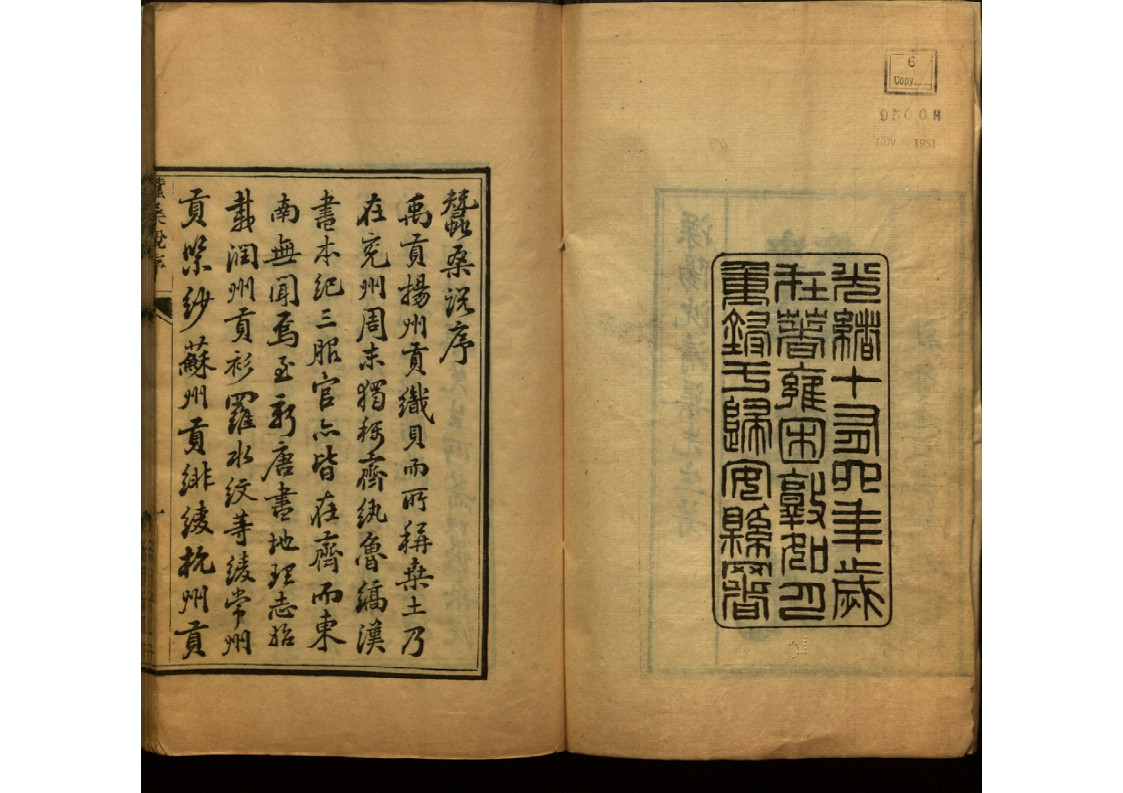 6
Copy
NOV 1951
光緒十有四年歲
在著雍困敦如月
重鋟于歸安縣署
蠶桑説序
禹貢揚州貢織貝而所稱桑土乃
在兗州周末獨稱齊紈魯縞漢
書本紀三服官亦皆在齊而東
南無聞焉至新唐書地理志始
載潤州貢衫羅水紋等綾常州
貢紫紗蘇州貢緋綾杭州貢
蠶桑說序